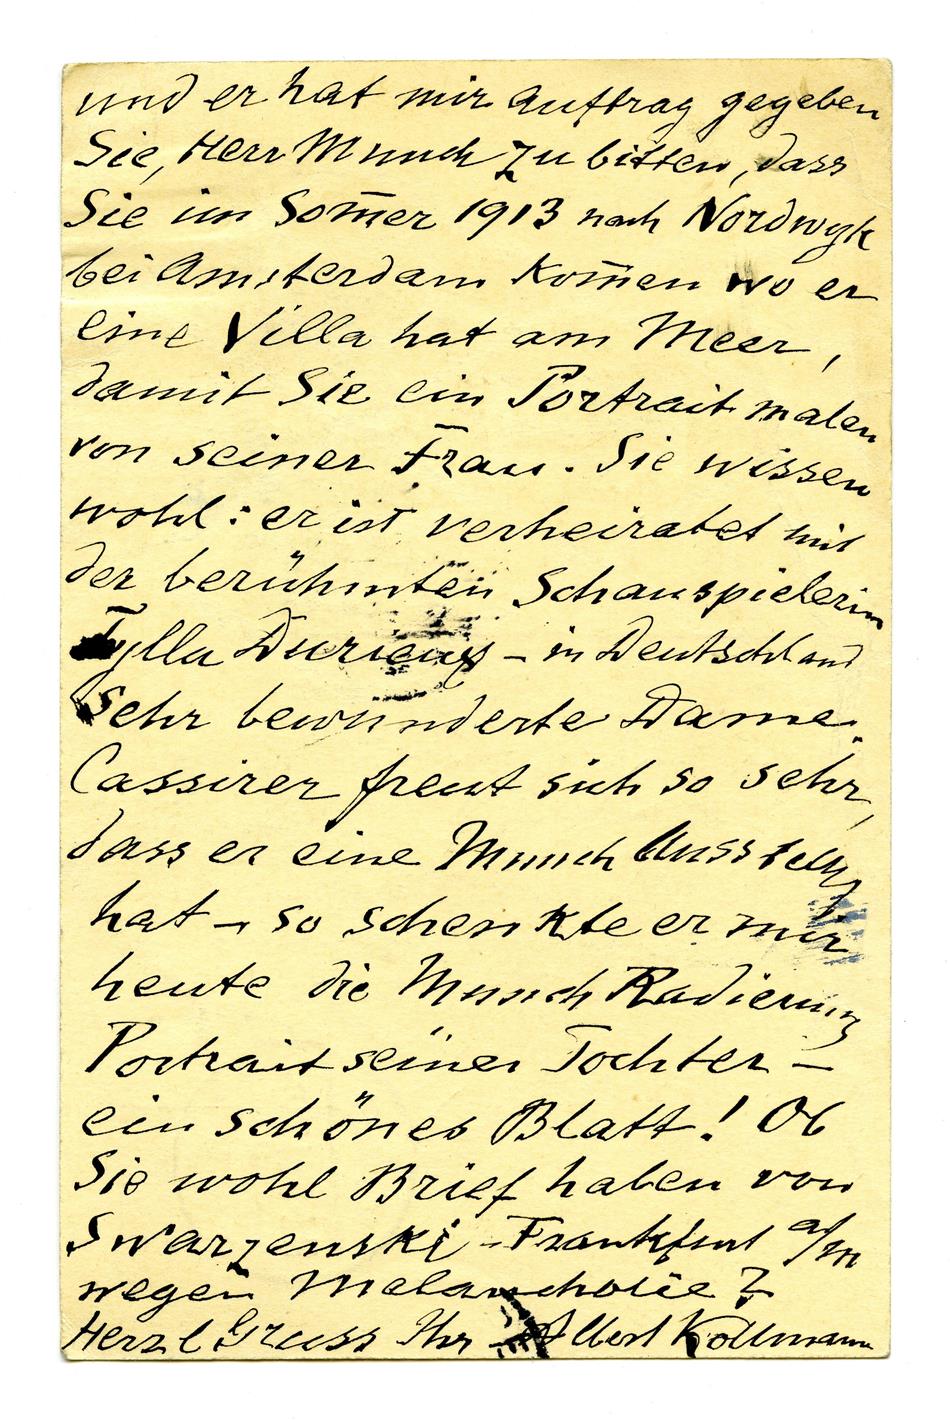 und er hat mir Auftrag gegeben
Sie, Herr Munch zu bitten, dass
Sie im Som̅er 1913 nach Nordwyk
bei Amsterdam kom̅en wo er
eine Villa hat am Meer,
damit Sie ein Portrait malen
von seiner Frau. Sie wissen
wohl: er ist verheiratet mit
der berühmten Schauspielerin
Tylla Durieux – in Deutschland
sehr bewunderte Dame.
Cassirer freut sich so sehr,
dass er eine Munch Ausstellg
hat – so schenkte er mir
heute die Munch Radierung
Portrait seiner Tochter –
ein schönes Blatt! Ob
Sie wohl Brief haben von
Swarzenski – Frankfurt a/M
wegen Melancholie?
Herzl Gruss Ihr Albert Kollmann